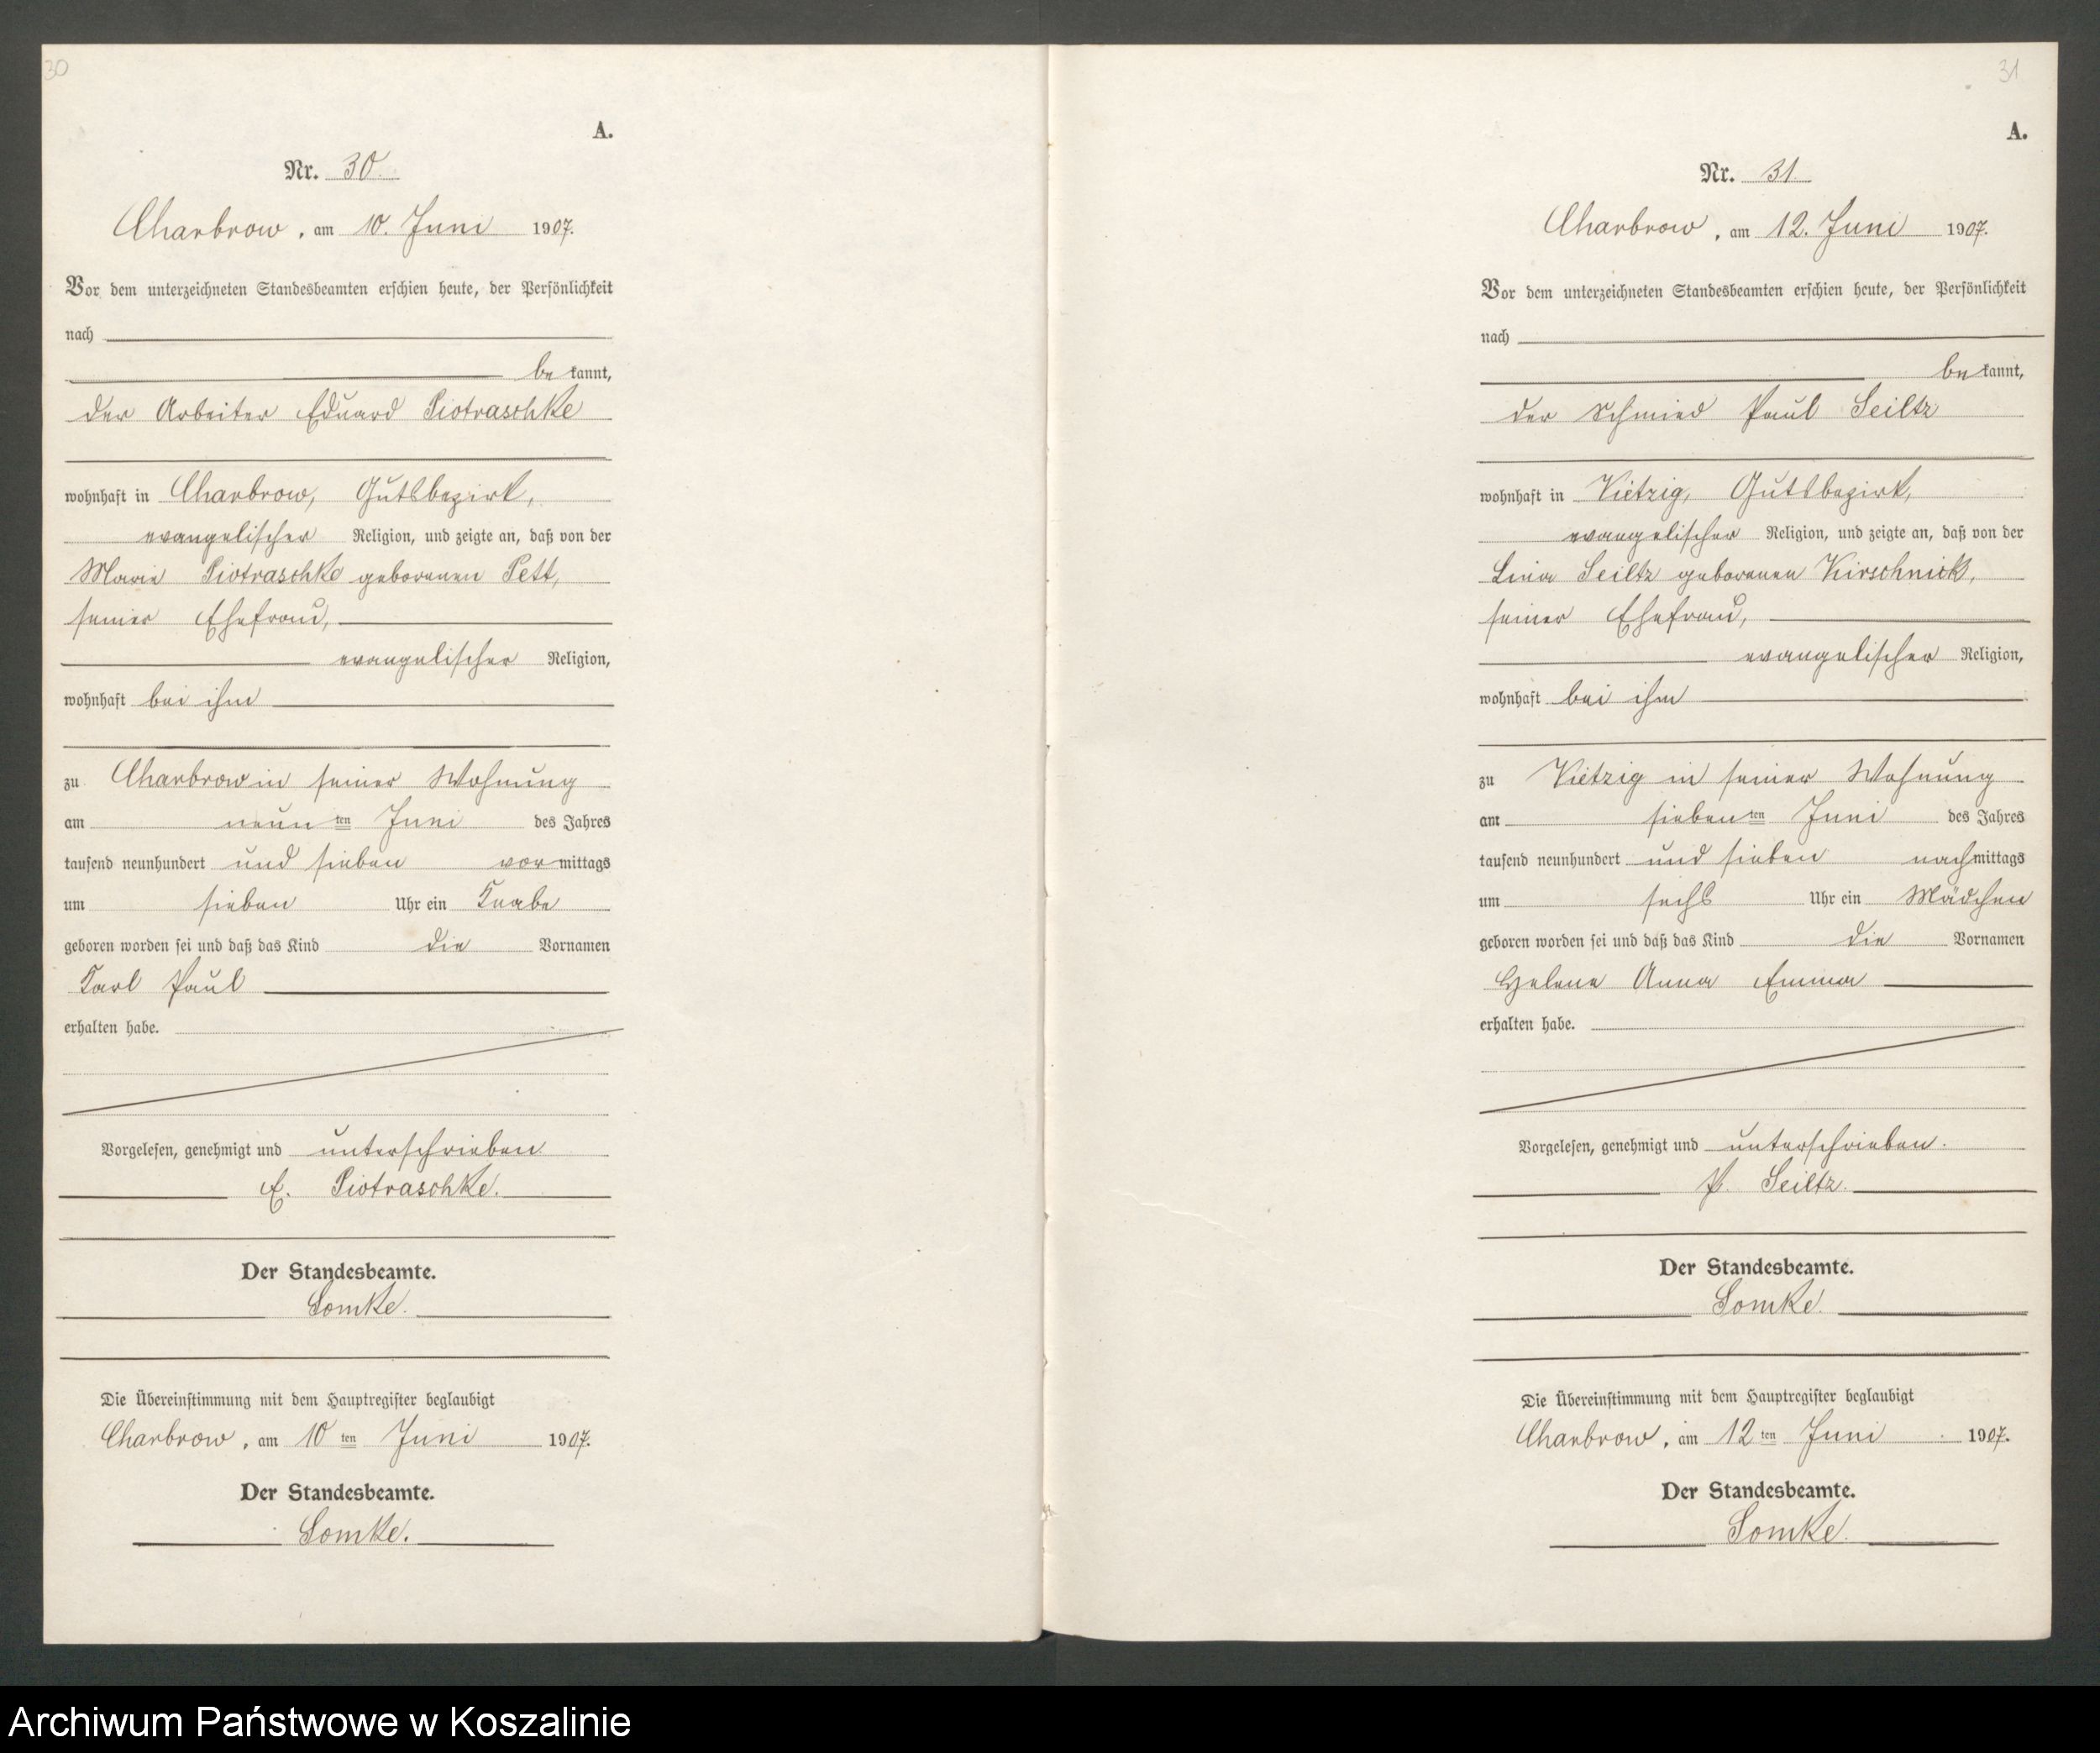 30
A.
Nr. 30.
Charbrow, am 10. Juni 1907.
Vor dem unterzeichneten Standesbeamten erschien heute, der Persönlichkeit
nach
be kannt,
der Arbeiter Eduard Piotraschke
wohnhaft in Charbrow, Gutsbezirk,
evangelischer Religion, und zeigte an, daß von der
Marie Piotraschke geborenen Pett,
seiner Ehefrau,
evangelischer Religion,
wohnhaft bei ihm
zu Charbrow in seiner Wohnung
am neun ten Juni des Jahres
tausend neunhundert und sieben vormittags
um sieben Uhr ein Knabe
geboren worden sei und daß das Kind die Vornamen
Karl Paul
erhalten habe.
Vorgelesen, genehmigt und unterschrieben
E. Piotraschke.
Der Standesbeamte.
Somke.
Die Übereinstimmung mit dem Hauptregister beglaubigt
Charbrow, am 10 ten Juni 1907.
Der Standesbeamte.
Somke.
31
A.
Nr. 31
Charbrow, am 12. Juni 1907.
Vor dem unterzeichneten Standesbeamten erschien heute, der Persönlichkeit
nach
be kannt,
der Schmied Paul Seiltz
wohnhaft in Vietzig, Gutsbezirk,
evangelischer Religion, und zeigte an, daß von der
Lina Seiltz geborenen Kirschnick,
seiner Ehefrau,
evangelischer Religion,
wohnhaft bei ihm
zu Vietzig in seiner Wohnung
am sieben ten Juni des Jahres
tausend neunhundert und sieben nachmittags
um sechs Uhr ein Mädchen
geboren worden sei und daß das Kind die Vornamen
Helene Anna Emma
erhalten habe.
Vorgelesen, genehmigt und unterschrieben.
P. Seiltz.
Der Standesbeamte.
Somke.
Die Übereinstimmung mit dem Hauptregister beglaubigt
Charbrow, am 12 ten Juni 1907.
Der Standesbeamte.
Somke.
Archiwum Państwowe w Koszalinie